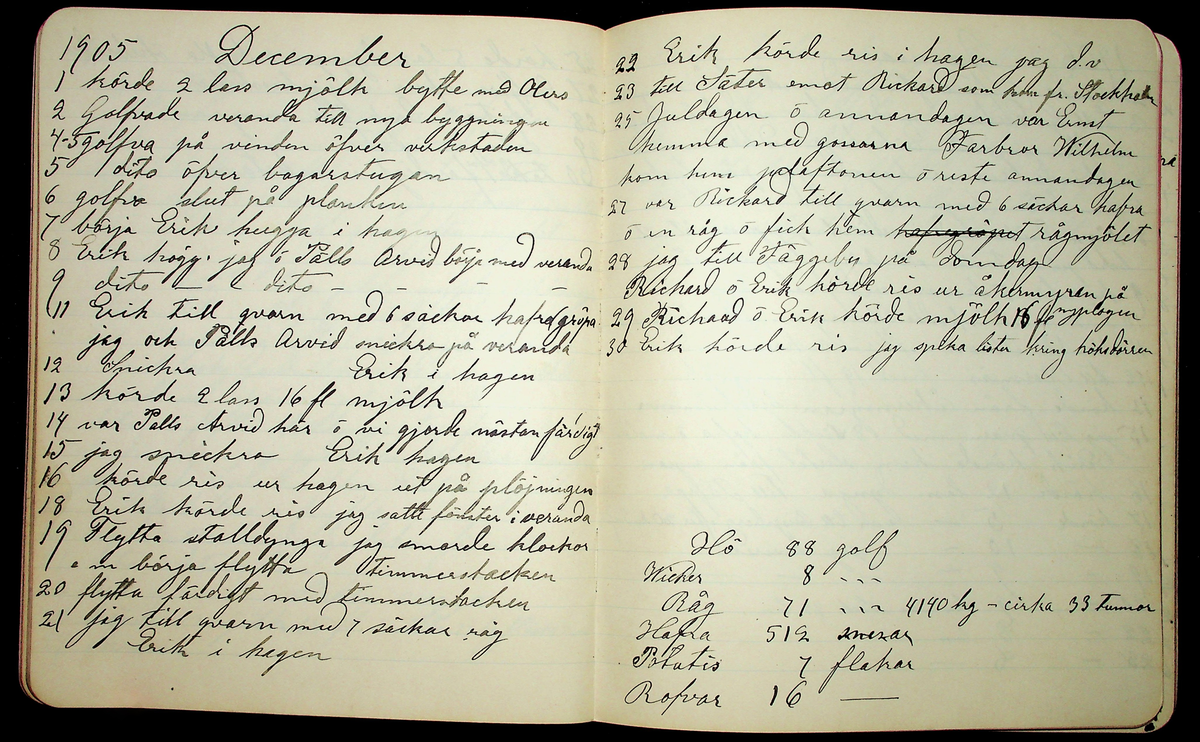 1905 December
1 körde 2 lass mjölk bytte med Olers
2 Golfvade veranda till nya byggningen
4-5 golfva på vinden öfver verkstaden
5 dito öfver bagarstugan
6 golfva slut på planken
7 börja Erik hugga i hagen
8 Erik högg jag o Pålls Arvid börja med veranda
9 dito — dito — — —
11 Erik till qvarn med 6 säckar hafra gröpa
jag och Pålls Arvid snickra på veranda
12 Snickra Erik i hagen
13 körde 2 lass 16 fl mjölk
14 var Pålls Arvid här o vi gjorde nästan färdigt
15 jag snickra Erik hagen
16 körde ris ur hagen ut på plöjningen
18 Erik körde ris jag satte fönster i veranda
19 Flytta stalldynga jag smorde klockor
em börja flytta timmerstacken
20 flytta färdigt med timmerstacken
21 jag till qvarn med 7 säckar råg
Erik i hagen
22 Erik körde ris i hagen jag d.v
23 till Säter emot Rickard som kom fr. Stockholm
25 Juldagen o annandagen var Ernst
hemma med gossarna Farbror Wilhelm
kom hem julaftonen o reste annandagen
27 var Rickard till qvarn med 6 säckar hafra
o en råg o fick hem hafregröpet rågmjölet
28 jag till Fäggeby på domdag
Richard o Erik körde ris ur åkermyran på
nyplogen
29 Richard o Erik körde mjölk 16 fl
30 Erik körde ris jag spika lister kring köksdörren
Hö 88 golf
Wicker 8 〃
Råg 71 〃 4140 kg - cirka 33 tunnor
Hafra 519 snesar
Potatis 7 flakar
Rofvor 16 —